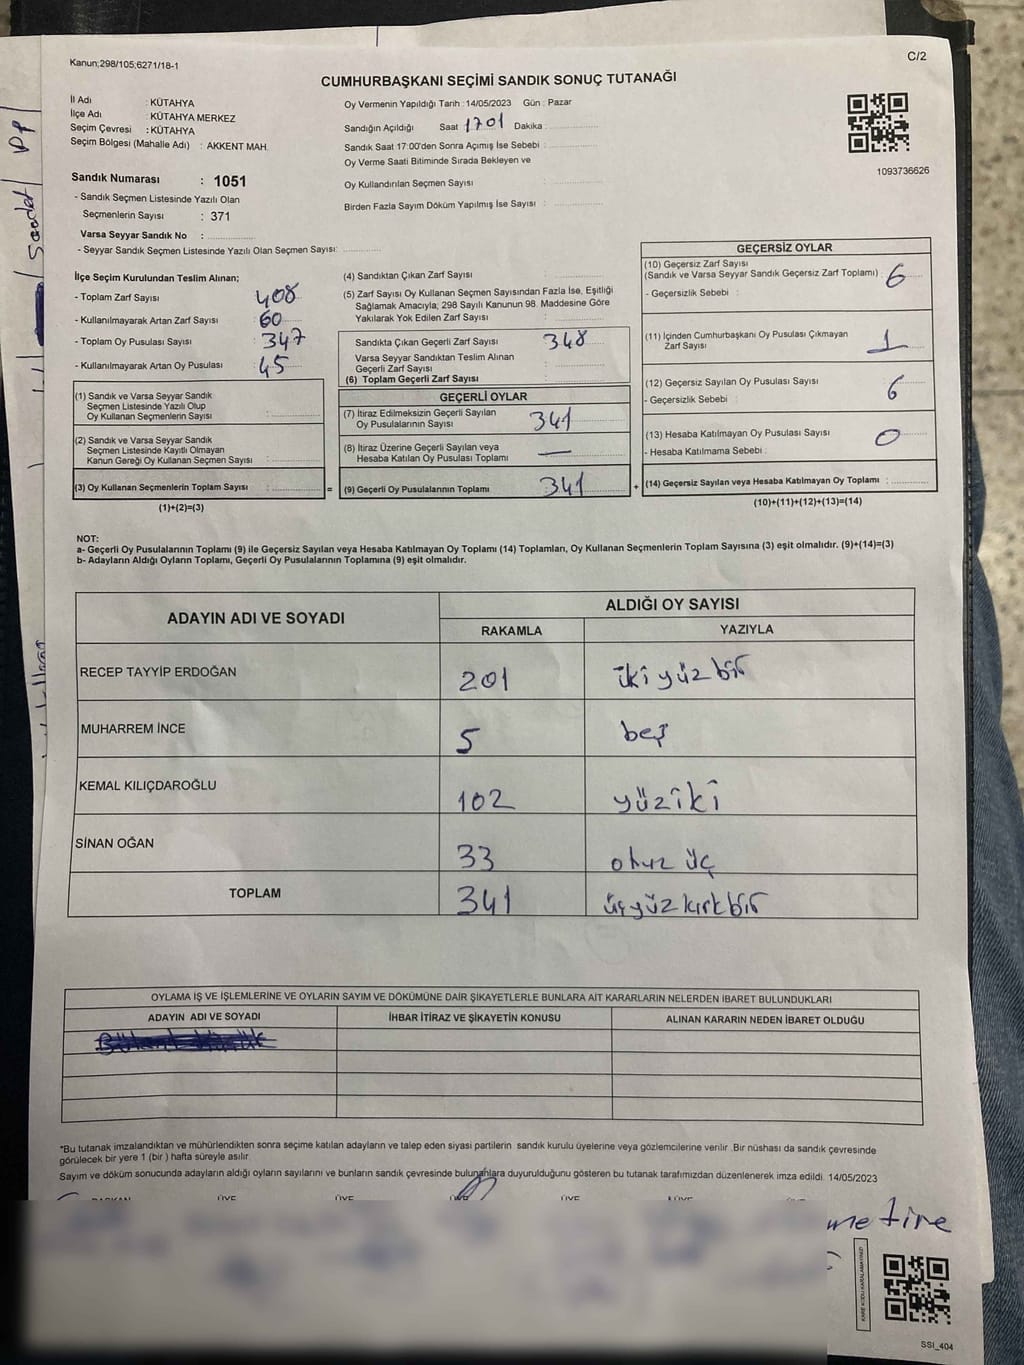 Kanun;298/105;6271/18-1
C/2
CUMHURBAŞKANI SEÇİMİ SANDIK SONUÇ TUTANAĞI
İl Adı : KÜTAHYA
İlçe Adı : KÜTAHYA MERKEZ
Seçim Çevresi : KÜTAHYA
Seçim Bölgesi (Mahalle Adı) : AKKENT MAH.
Sandık Numarası : 1051
- Sandık Seçmen Listesinde Yazılı Olan
Seçmenlerin Sayısı : 371
Varsa Seyyar Sandık No :
- Seyyar Sandık Seçmen Listesinde Yazılı Olan Seçmen Sayısı:
Oy Vermenin Yapıldığı Tarih : 14/05/2023 Gün : Pazar
Sandığın Açıldığı Saat 1701 Dakika :
Sandık Saat 17:00'den Sonra Açımış İse Sebebi :
Oy Verme Saati Bitiminde Sırada Bekleyen ve
Oy Kullandırılan Seçmen Sayısı :
Birden Fazla Sayım Döküm Yapılmış İse Sayısı :
1093736626
İlçe Seçim Kurulundan Teslim Alınan;
- Toplam Zarf Sayısı 408
- Kullanılmayarak Artan Zarf Sayısı 60
- Toplam Oy Pusulası Sayısı 347
- Kullanılmayarak Artan Oy Pusulası 45
(1) Sandık ve Varsa Seyyar Sandık
Seçmen Listesinde Yazılı Olup
Oy Kullanan Seçmenlerin Sayısı :
(2) Sandık ve Varsa Seyyar Sandık
Seçmen Listesinde Kayıtlı Olmayan
Kanun Gereği Oy Kullanan Seçmen Sayısı :
(3) Oy Kullanan Seçmenlerin Toplam Sayısı : =
(1)+(2)=(3)
(4) Sandıktan Çıkan Zarf Sayısı :
(5) Zarf Sayısı Oy Kullanan Seçmen Sayısından Fazla İse, Eşitliği
Sağlamak Amacıyla; 298 Sayılı Kanunun 98. Maddesine Göre
Yakılarak Yok Edilen Zarf Sayısı :
Sandıkta Çıkan Geçerli Zarf Sayısı 348
Varsa Seyyar Sandıktan Teslim Alınan
Geçerli Zarf Sayısı :
(6) Toplam Geçerli Zarf Sayısı :
GEÇERLİ OYLAR
(7) İtiraz Edilmeksizin Geçerli Sayılan
Oy Pusulalarının Sayısı 341
(8) İtiraz Üzerine Geçerli Sayılan veya
Hesaba Katılan Oy Pusulası Toplamı —
(9) Geçerli Oy Pusulalarının Toplamı 341 +
GEÇERSİZ OYLAR
(10) Geçersiz Zarf Sayısı
(Sandık ve Varsa Seyyar Sandık Geçersiz Zarf Toplamı) 6
- Geçersizlik Sebebi :
(11) İçinden Cumhurbaşkanı Oy Pusulası Çıkmayan
Zarf Sayısı 1
(12) Geçersiz Sayılan Oy Pusulası Sayısı 6
- Geçersizlik Sebebi :
(13) Hesaba Katılmayan Oy Pusulası Sayısı 0
- Hesaba Katılmama Sebebi :
(14) Geçersiz Sayılan veya Hesaba Katılmayan Oy Toplamı :
(10)+(11)+(12)+(13)=(14)
NOT:
a- Geçerli Oy Pusulalarının Toplamı (9) ile Geçersiz Sayılan veya Hesaba Katılmayan Oy Toplamı (14) Toplamları, Oy Kullanan Seçmenlerin Toplam Sayısına (3) eşit olmalıdır. (9)+(14)=(3)
b- Adayların Aldığı Oyların Toplamı, Geçerli Oy Pusulalarının Toplamına (9) eşit olmalıdır.
ADAYIN ADI VE SOYADI
ALDIĞI OY SAYISI
RAKAMLA YAZIYLA
RECEP TAYYİP ERDOĞAN 201 iki yüz bir
MUHARREM İNCE 5 beş
KEMAL KILIÇDAROĞLU 102 yüziki
SİNAN OĞAN 33 otuz üç
TOPLAM 341 üçyüz kırkbir
OYLAMA İŞ VE İŞLEMLERİNE VE OYLARIN SAYIM VE DÖKÜMÜNE DAİR ŞİKAYETLERLE BUNLARA AİT KARARLARIN NELERDEN İBARET BULUNDUKLARI
ADAYIN ADI VE SOYADI İHBAR İTİRAZ VE ŞİKAYETİN KONUSU ALINAN KARARIN NEDEN İBARET OLDUĞU
*Bu tutanak imzalandıktan ve mühürlendikten sonra seçime katılan adayların ve talep eden siyasi partilerin sandık kurulu üyelerine veya gözlemcilerine verilir. Bir nüshası da sandık çevresinde
görülecek bir yere 1 (bir) hafta süreyle asılır.
Sayım ve döküm sonucunda adayların aldığı oyların sayılarını ve bunların sandık çevresinde bulunanlara duyurulduğunu gösteren bu tutanak tarafımızdan düzenlenerek imza edildi. 14/05/2023
BAŞKAN ÜYE ÜYE ÜYE ÜYE ÜYE
KARE KODU KARALAMAYINIZ!
SSI_404
Saadet